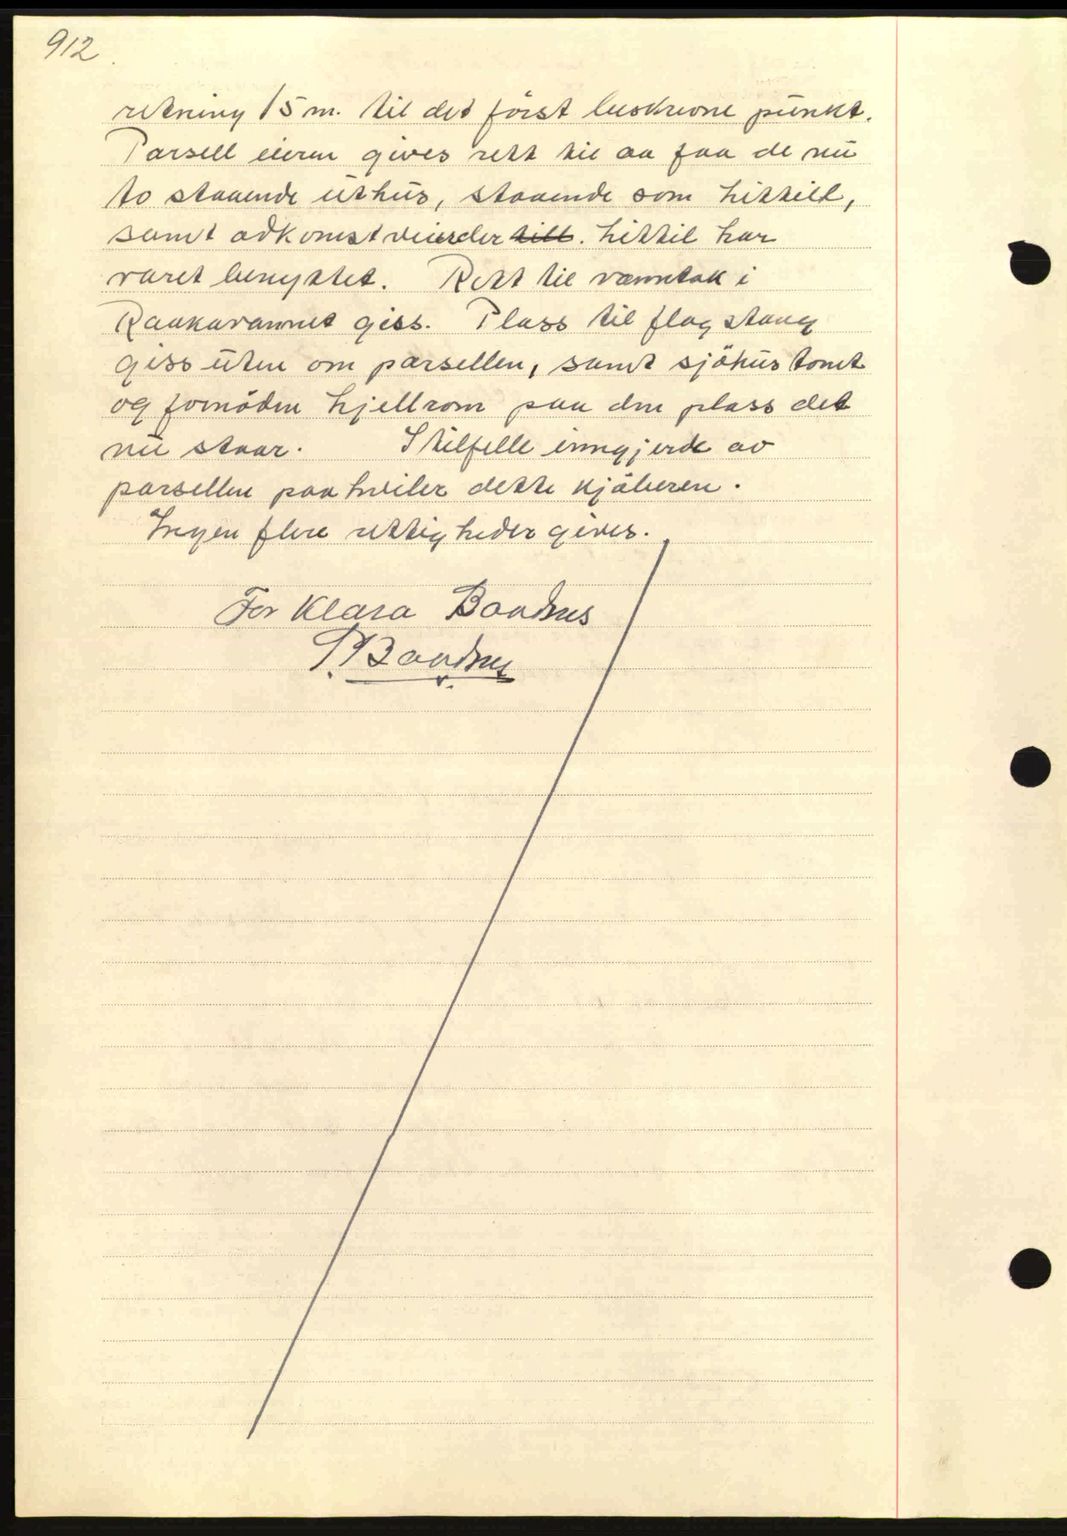 912
retning 15 m. til det først beskrevne punkt.
Parsell eieren gives rett til aa faa de nu
to staaende uthus, staaende som hittill,
samt adkomst veier der till. hittil har
været benyttet. Rett til vanntak i
Raakavannet giss. Plass til flag stang
giss uten om parsellen, samt sjøhus tomt
og fornøden hjellrom paa den plass det
nu staar. I tilfelle inngjerde av
parsellen paa hviler dette kjøberen.
Ingen flere rettigheder gives.
For Klara Baadnes
P. Baadnes